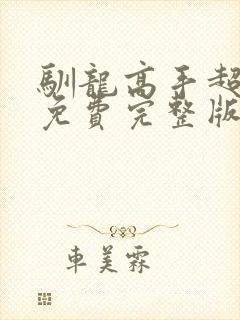 馴龍高手超
免費完整版
車美霖